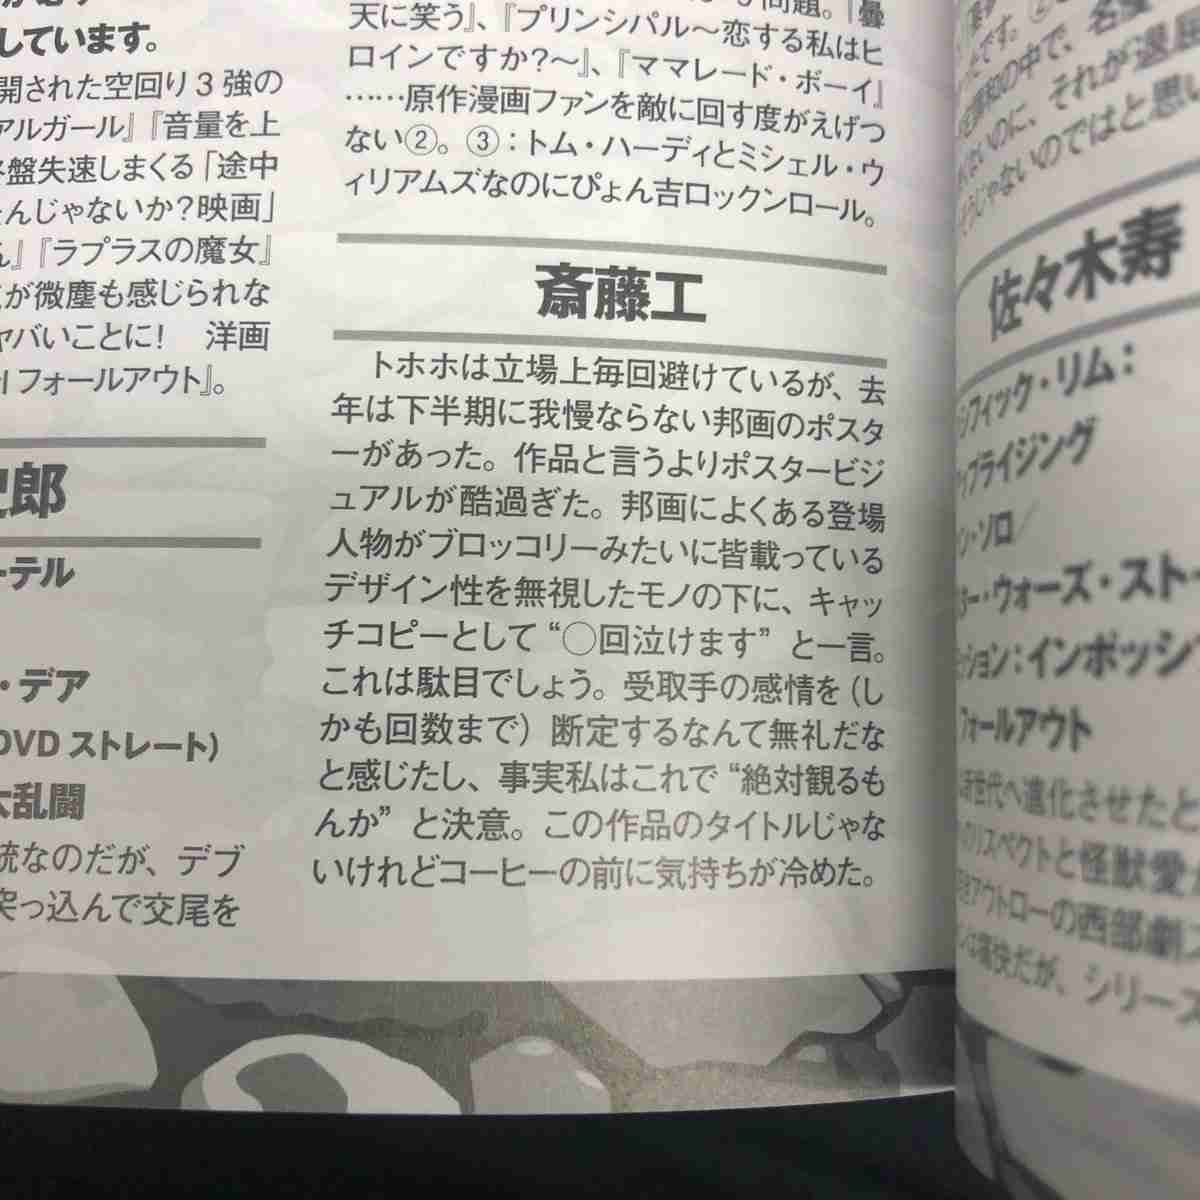 しています。
開された空回り3強の
アルガール』『音量を上
盤失速しまくる「途中
んじゃないか?映画」
』『ラプラスの魔女』
が微塵も感じられな
ヤバいことに! 洋画
フォールアウト』。
郎
ーテル
・デア
DVDストレート)
大乱闘
統なのだが、デブ
突っ込んで交尾を
問題。『曇
天に笑う』、『プリンシパル〜恋する私はヒ
ロインですか?〜』、『ママレード・ボーイ』
……原作漫画ファンを敵に回す度がえげつ
ない②。③:トム・ハーディとミシェル・ウ
ィリアムズなのにぴょん吉ロックンロール。
斎藤工
トホホは立場上毎回避けているが、去
年は下半期に我慢ならない邦画のポスタ
ーがあった。作品と言うよりポスタービジ
ュアルが酷過ぎた。邦画によくある登場
人物がブロッコリーみたいに皆載っている
デザイン性を無視したモノの下に、キャッ
チコピーとして“○回泣けます”と一言。
これは駄目でしょう。受取手の感情を(し
かも回数まで)断定するなんて無礼だな
と感じたし、事実私はこれで“絶対観るも
んか”と決意。この作品のタイトルじゃな
いけれどコーヒーの前に気持ちが冷めた。
です。②
の中で、名
ないのに、それが退屈
じゃないのではと思い
佐々木寿
シフィック・リム:
ップライジング
ン・ソロ/
ー・ウォーズ・スト
ション:インポッシ
フォールアウト
新世代へ進化させたと
リスペクトと怪獣愛
アウトローの西部劇
は痛快だが、シリーズ